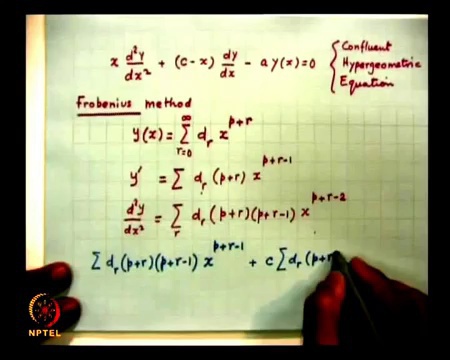 x d²y/dx² + (c-x) dy/dx - a y(x) = 0 { Confluent Hypergeometric Equation
Frobenius method
y(x) = ∞ ∑ r=0 d_r x^{p+r}
y' = ∑ d_r (p+r) x^{p+r-1}
d²y/dx² = ∑_r d_r (p+r)(p+r-1) x^{p+r-2}
∑ d_r (p+r)(p+r-1) x^{p+r-1} + c ∑ d_r (p+r
NPTEL